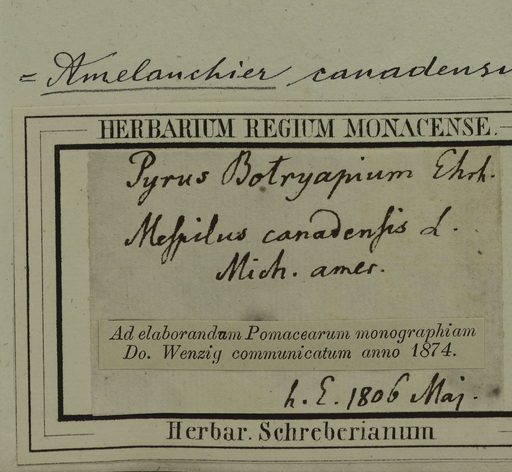 = Amelanchier canadensi
HERBARIUM REGIUM MONACENSE.
Pyrus Botryapium Ehrh.
Mespilus canadensis L.
Mich. amer.
Ad elaborandum Pomacearum monographiam
Do. Wenzig communicatum anno 1874.
h. E. 1806 Maj.
Herbar. Schreberianum